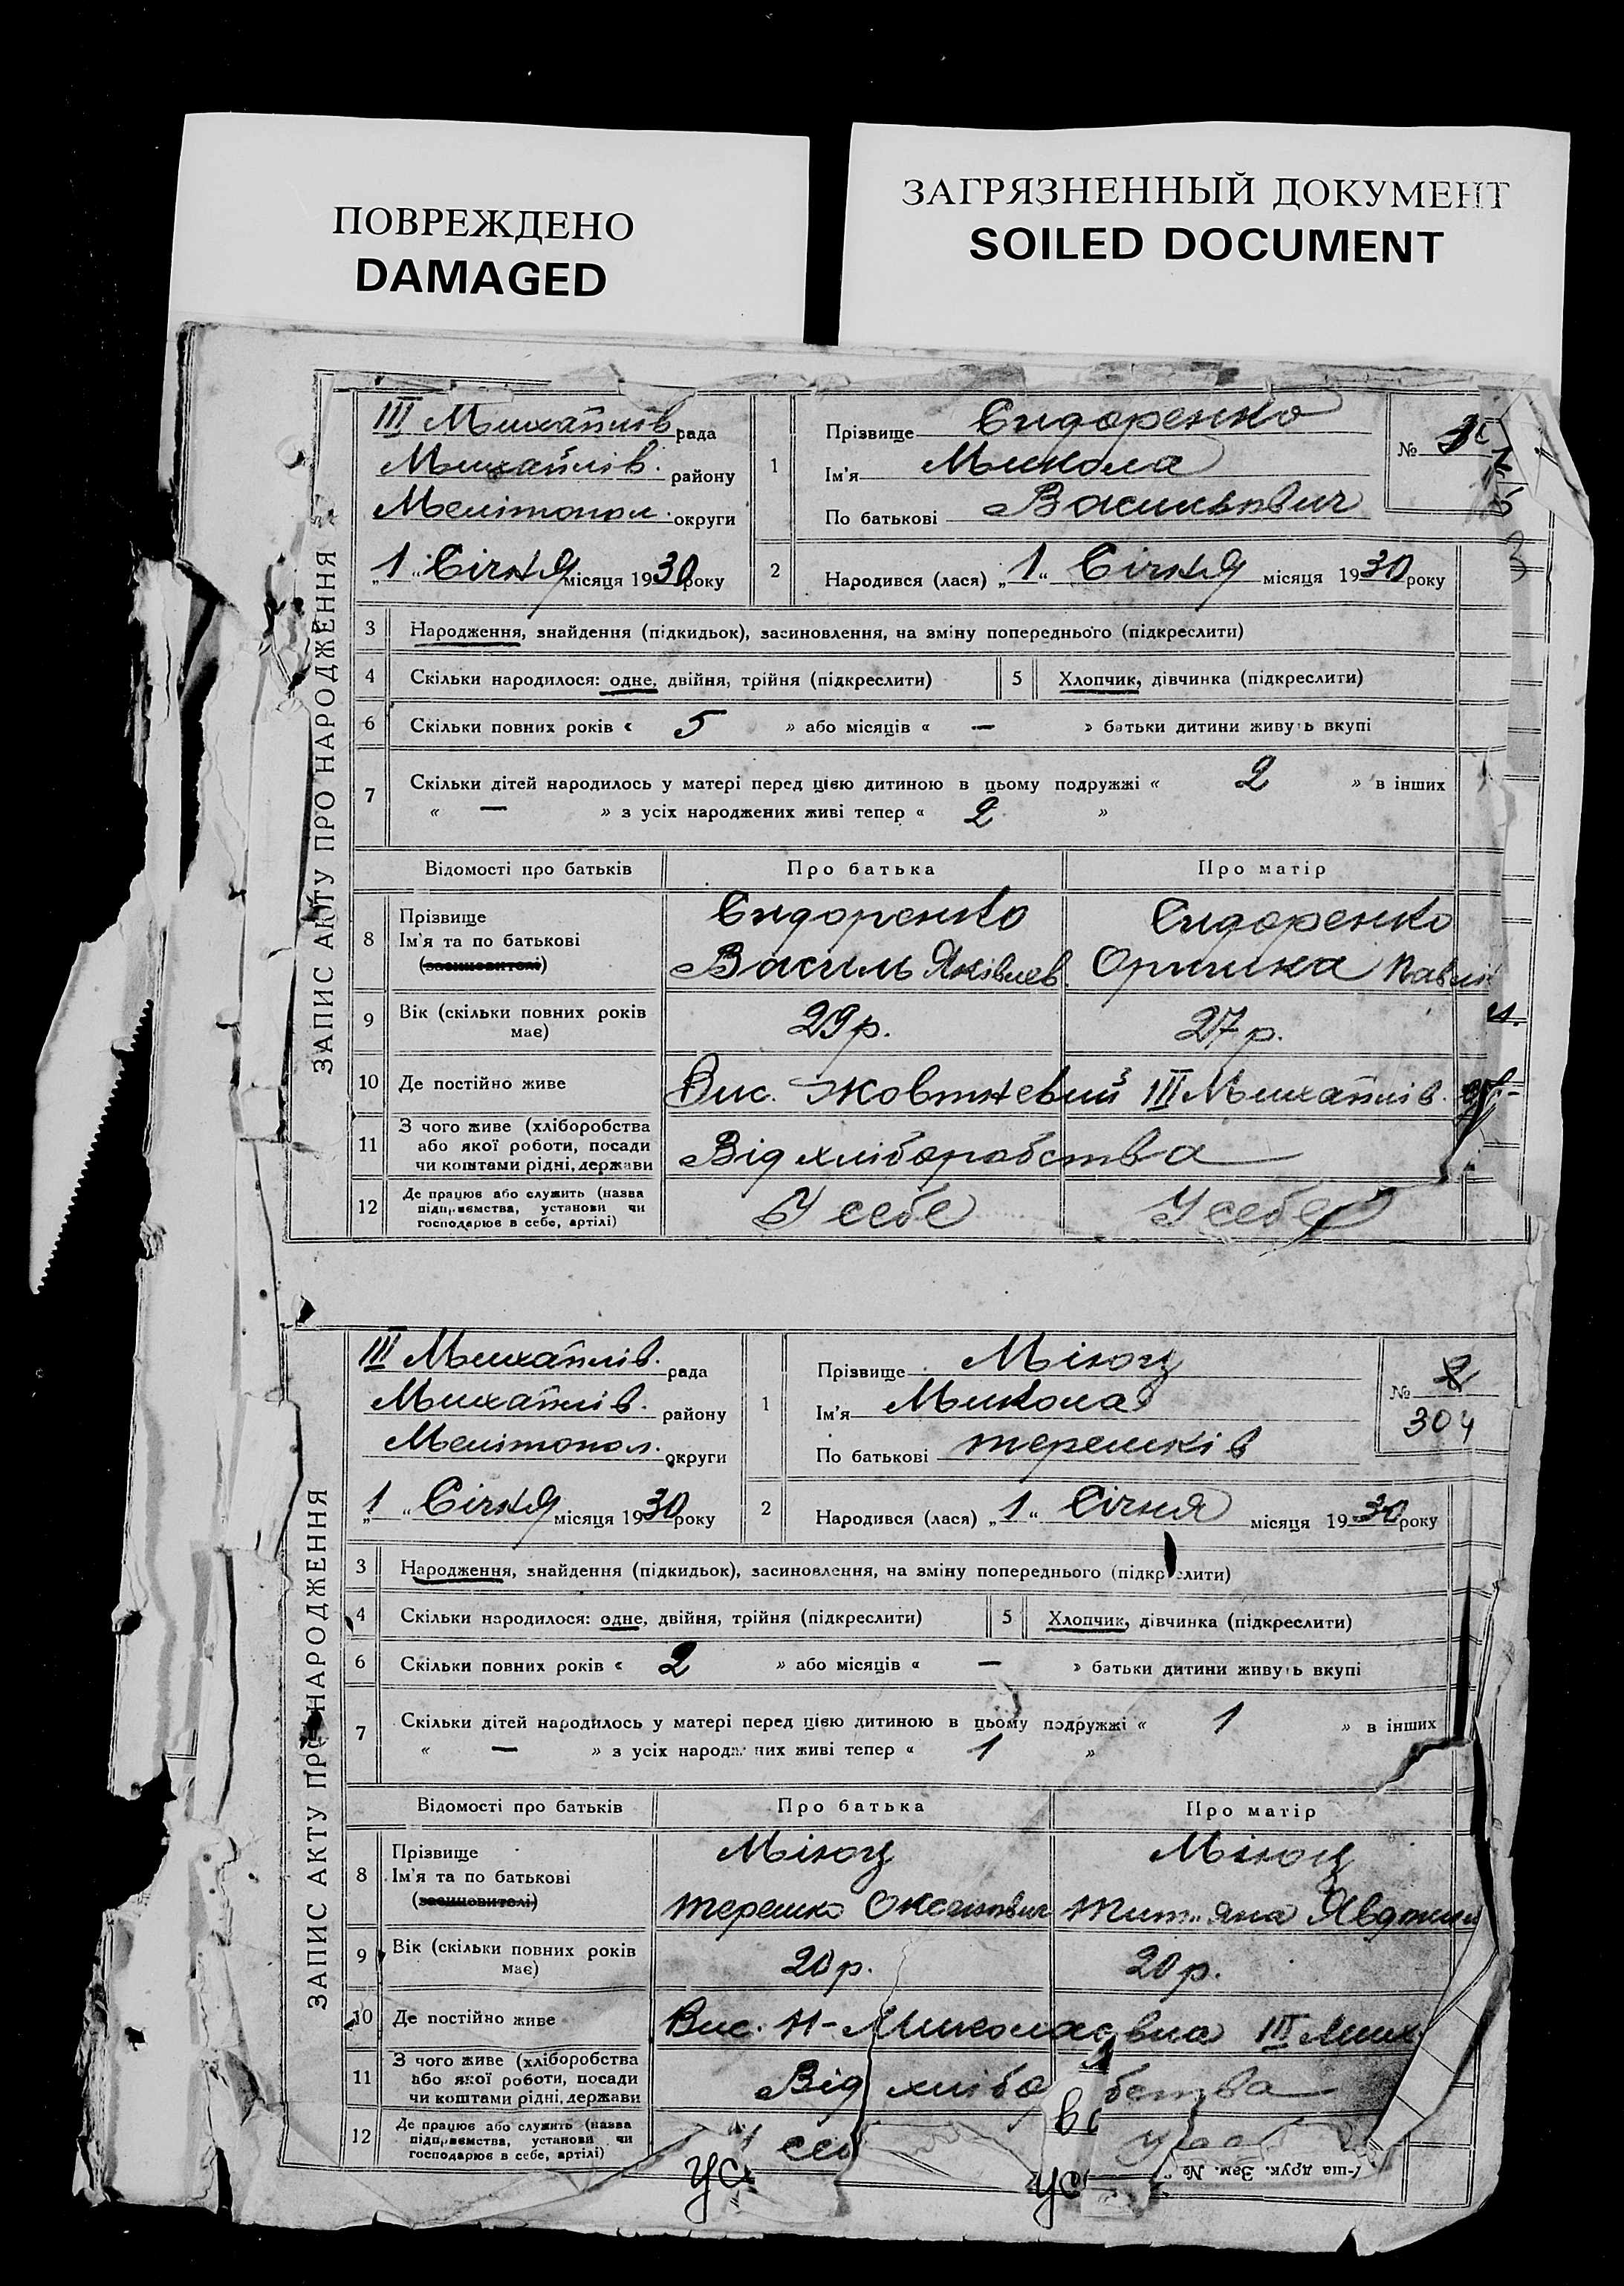 ПОВРЕЖДЕНО
DAMAGED
ЗАГРЯЗНЕННЫЙ ДОКУМЕНТ
SOILED DOCUMENT
ЗАПИС АКТУ ПРО НАРОДЖЕННЯ
III Михайлів рада
Михайлів. району
Мелітопол. округи
„1“ Січня місяця 1930 року
1
Прізвище Сидоренко
Ім'я Микола
По батькові Васильович
№
2
Народився (лася) „1“ Січня місяця 1930 року
3 Народження, знайдення (підкидьок), засиновлення, на зміну попереднього (підкреслити)
4 Скільки народилося: одне, двійня, трійня (підкреслити) 5 Хлопчик, дівчинка (підкреслити)
6 Скільки повних років « 5 » або місяців « — » батьки дитини живуть вкупі
7 Скільки дітей народилось у матері перед цією дитиною в цьому подружжі « 2 » в інших
« — » з усіх народжених живі тепер « 2 »
Відомості про батьків Про батька Про матір
8 Прізвище Сидоренко Сидоренко
Ім'я та по батькові Василь Яківлев. Оришка Павлі
(засиновителі)
9 Вік (скільки повних років має) 29 р. 27 р.
10 Де постійно живе Вис. Жовтневий III Михайлів.
11 З чого живе (хліборобства або якої роботи, посади чи коштами рідні, держави Від хліборобства
12 Де працює або служить (назва підприємства, установи чи господарює в себе, артілі) У себе У себе
ЗАПИС АКТУ ПРО НАРОДЖЕННЯ
III Михайлів. рада
Михайлів. району
Мелітопол. округи
„1“ Січня місяця 1930 року
1
Прізвище Мілоц
Ім'я Микола
По батькові Терешків
№ 2
304
2
Народився (лася) „1“ Січня місяця 1930 року
3 Народження, знайдення (підкидьок), засиновлення, на зміну попереднього (підкреслити)
4 Скільки народилося: одне, двійня, трійня (підкреслити) 5 Хлопчик, дівчинка (підкреслити)
6 Скільки повних років « 2 » або місяців « — » батьки дитини живуть вкупі
7 Скільки дітей народилось у матері перед цією дитиною в цьому подружжі « 1 » в інших
« — » з усіх народжених живі тепер « 1 »
Відомості про батьків Про батька Про матір
8 Прізвище Мілоц Мілоц
Ім'я та по батькові Терешко Оксентович Тит яна Явдоким
(засиновителі)
9 Вік (скільки повних років має) 20 р. 20 р.
10 Де постійно живе Вис. Н-Миколаєвка III Мих
11 З чого живе (хліборобства або якої роботи, посади чи коштами рідні, держави Від хлібо бства
12 Де працює або служить (назва підприємства, установи чи господарює в себе, артілі) У себ
ус ус
7-ша друк. Зам. №